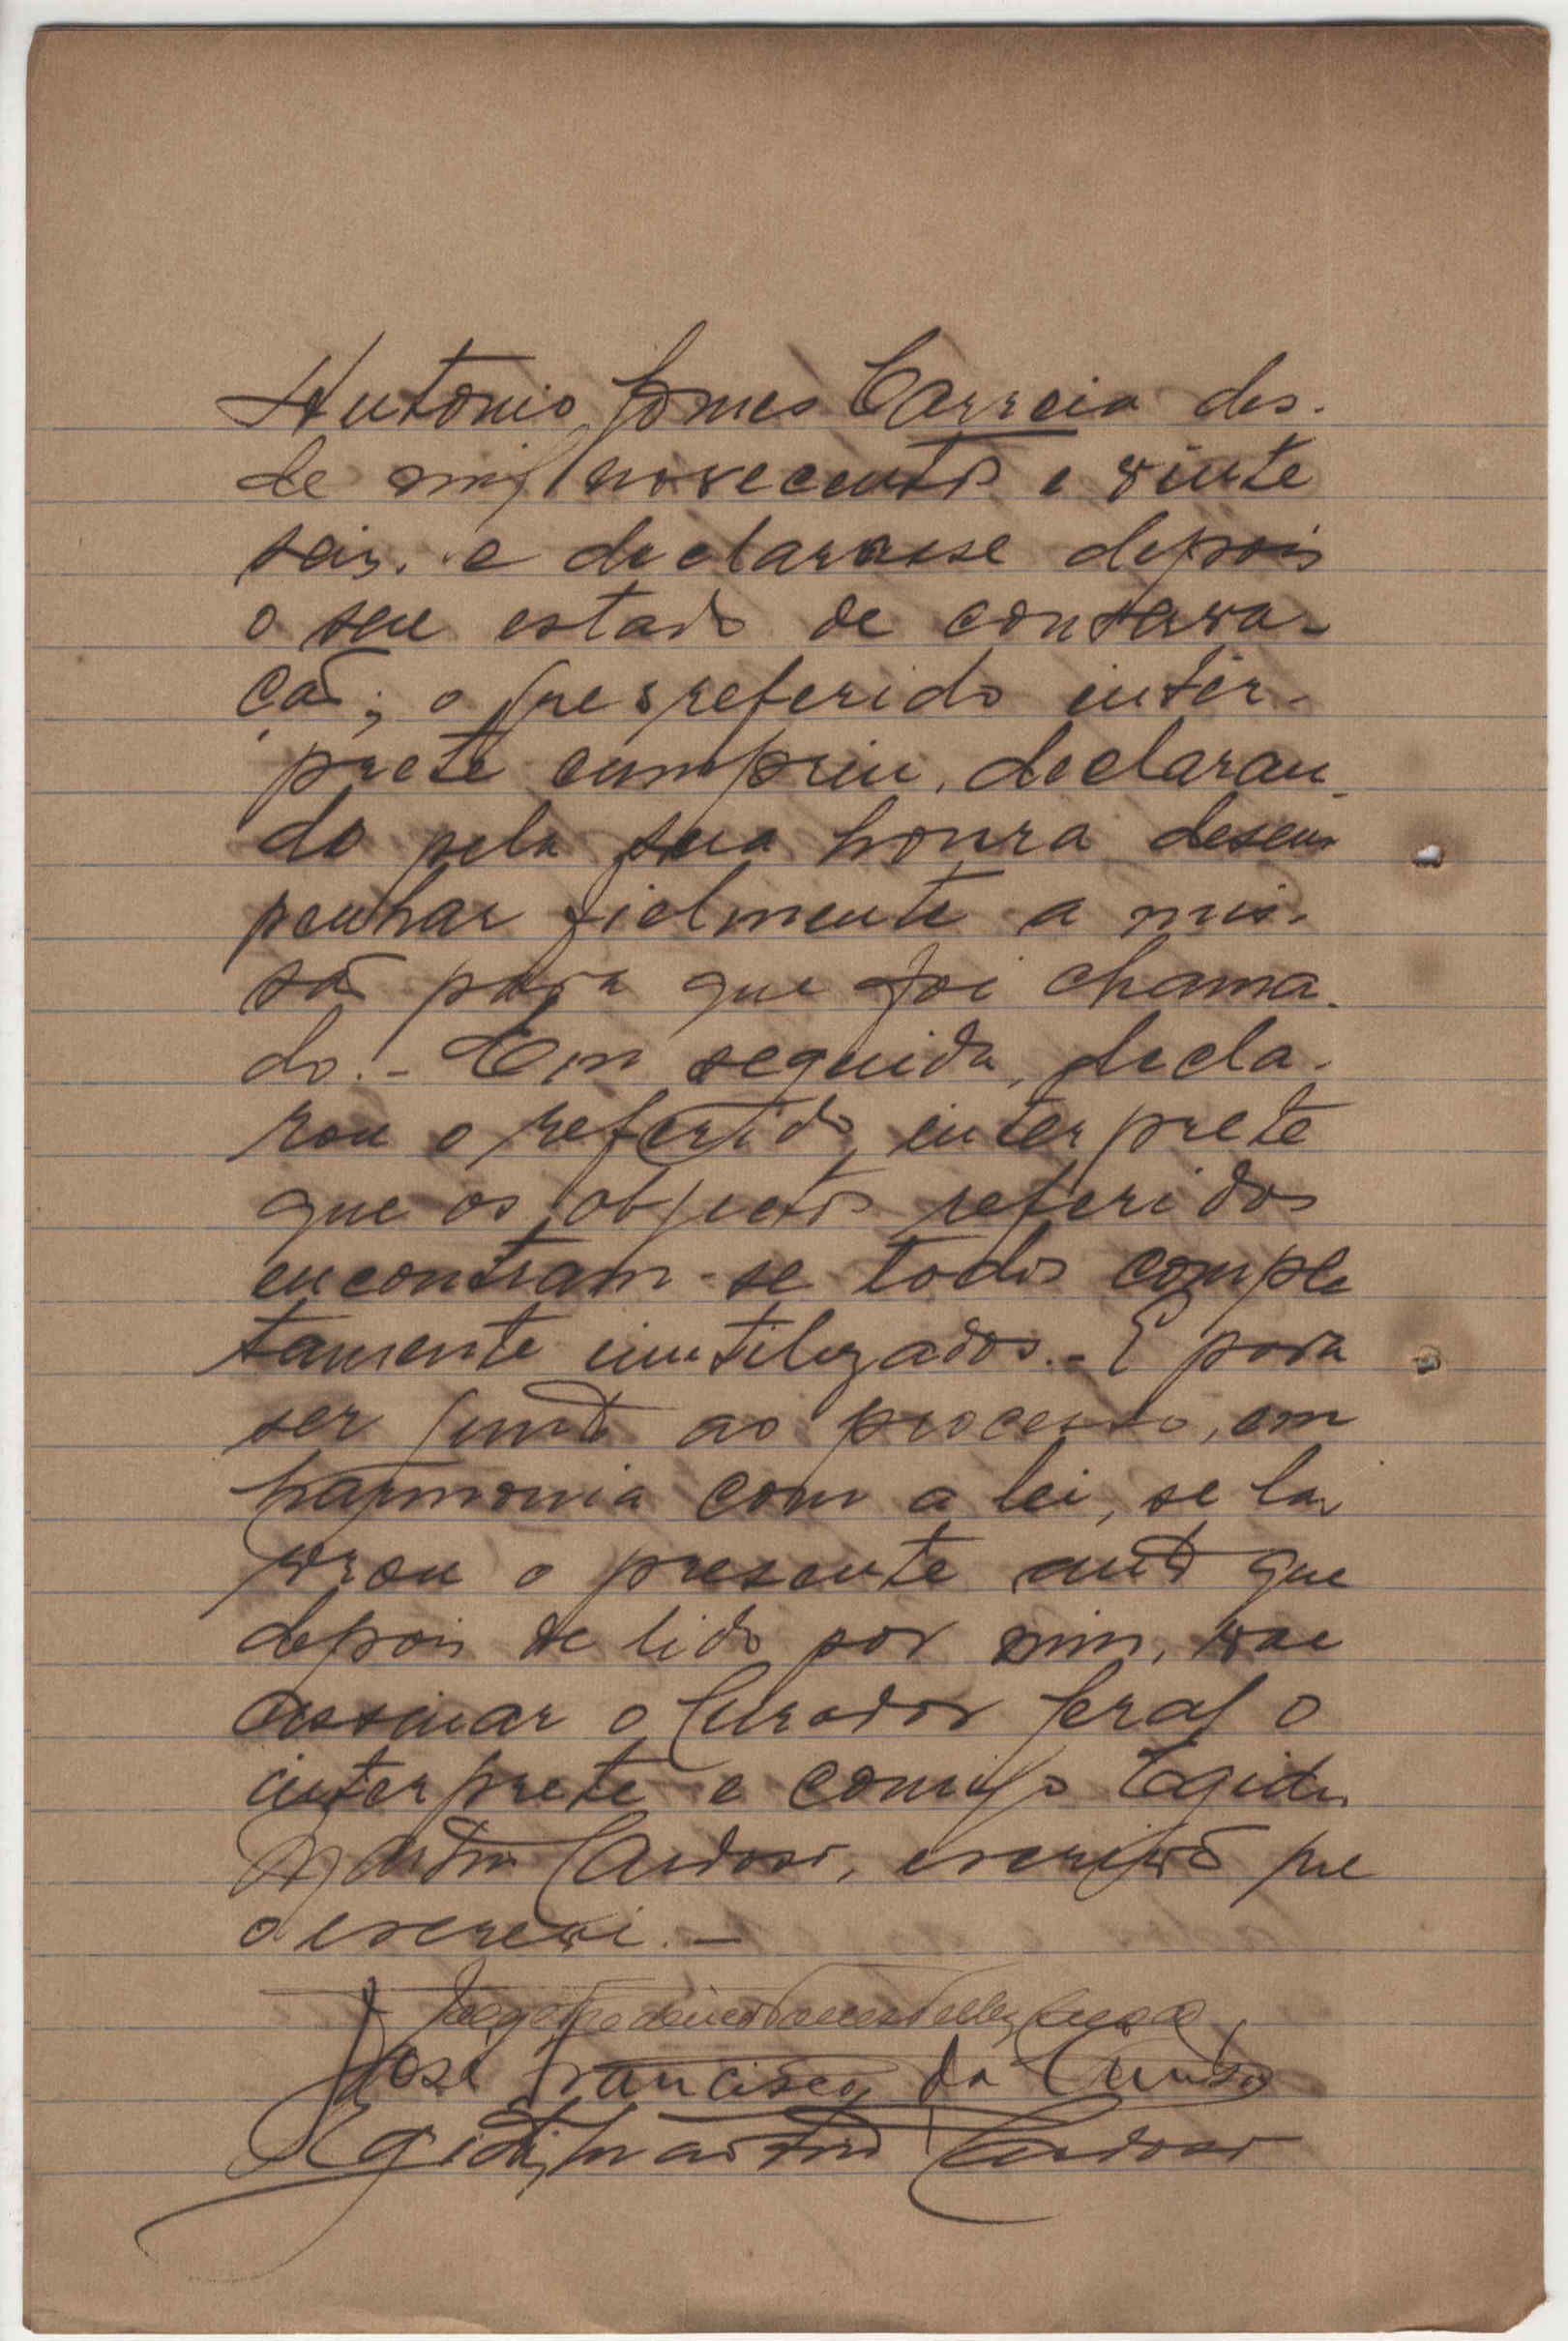 Antonio Gomes Carreia des-
de mil novecentos e vinte
seis. e declarasse depois
o seu estado de conserva-
ção; o que o referido inter-
prete cumpriu, declaran-
do pela sua honra desem
penhar fielmente a mis-
são para que foi chama-
do. - Em seguida, decla-
rou o referido interprete
que os objectos referidos
encontram-se todos comple
tamente inutilizados. - E para
ser junto ao processo, em
harmonia com a lei, se la
vrou o presente auto que
depois de lido por mim, vae
assinar o Curador Geral o
interprete e comigo Egidio
Martins Cardoso, escrivão que
o escrevi. -
José Francisco da Cunha
Egidio Martins Cardoso